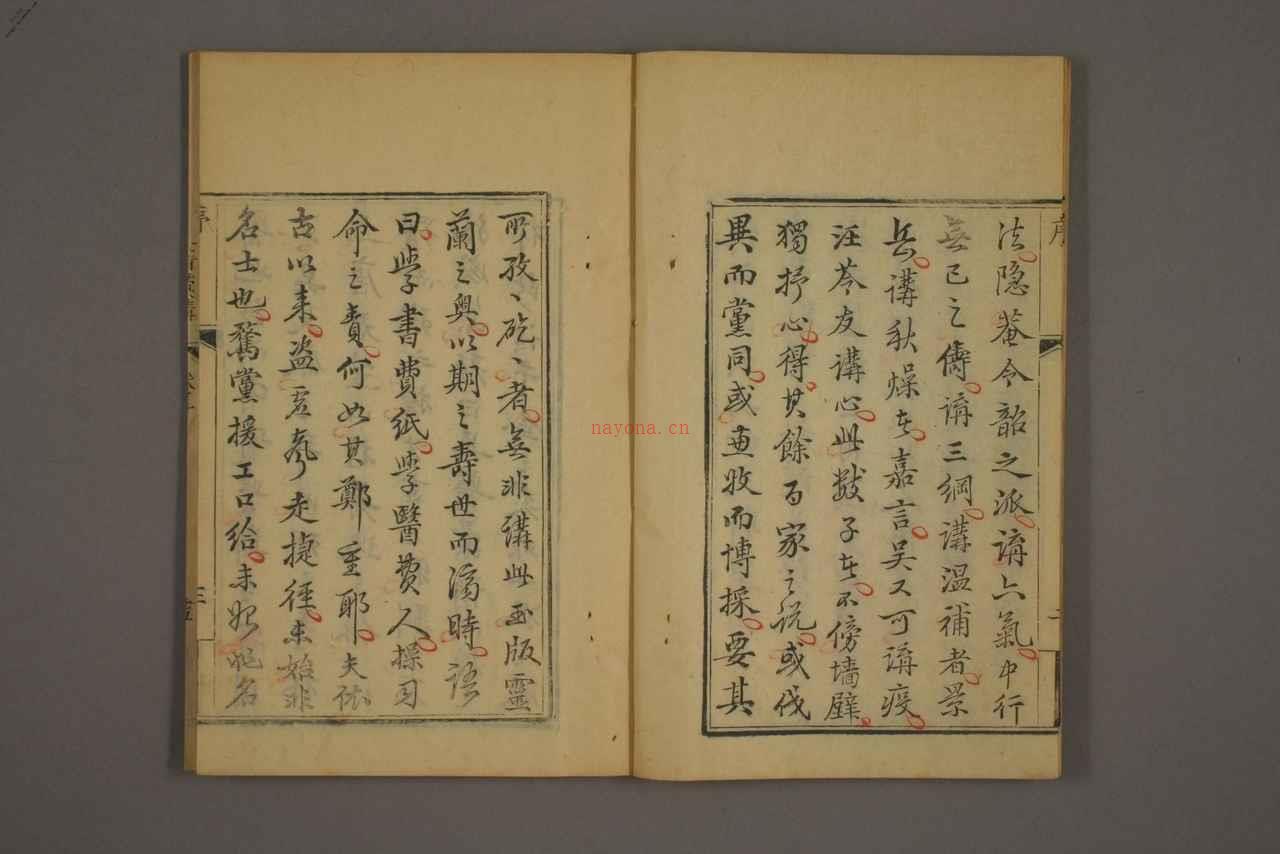 序
法隐菴今韶之派講六氣中行
無己之儔講三綱講温補者景
岳講秋燥在嘉言吴又可講疫
汪苓友講心此數子在不傍墙壁
獨抒心得其餘百家之说或伐
異而黨同或兼收而博採要其
二
所孜〻矻〻者無非講此玉版靈
蘭之奥以期之壽世而濟時語
曰學書費紙學醫費人操司
命之責何如其鄭重耶夫依
古以来盗虚聲走捷徑未始非
名士也騖黨援工口给未始非名
序
三
nayona.cn